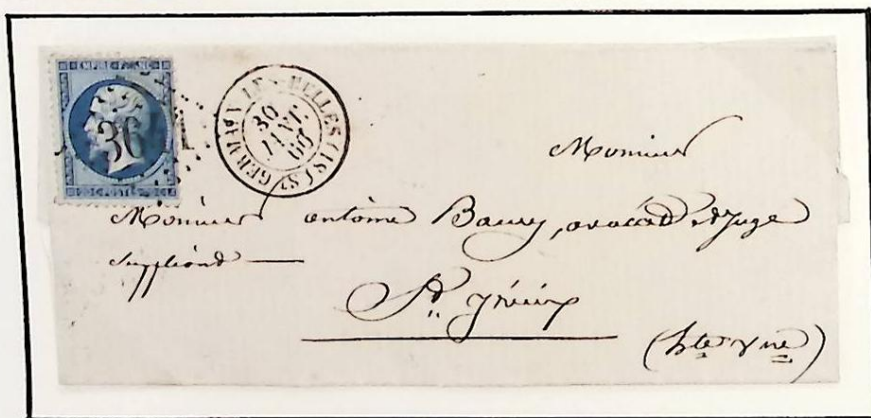 EMPIRE FRANC
POSTES
ST GERMAIN-LES-BELLES (81)
30
JANV.
66
Monsieur
Monsieur antoine Baury, avocat et Juge
suppléant
St. yrieix
(hte vne)